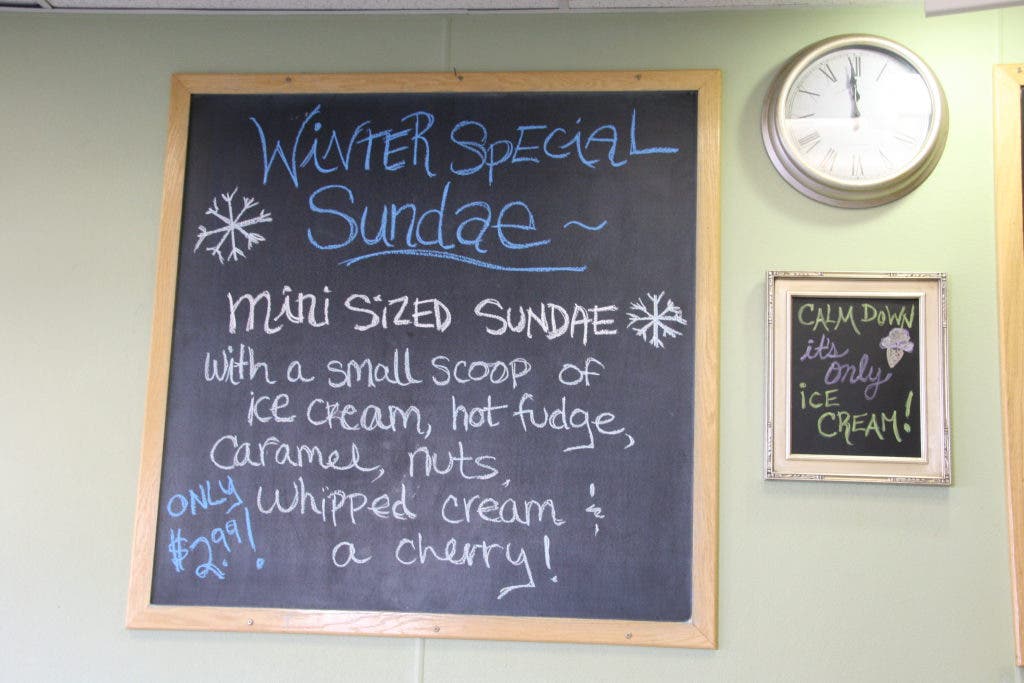 WINTER SPECIAL
Sundae ~
mini SIZED SUNDAE
with a small scoop of
ice cream, hot fudge,
caramel, nuts,
whipped cream &
a cherry!
ONLY
$2.99!
CALM DOWN
it's
only
iCE
CREAM!